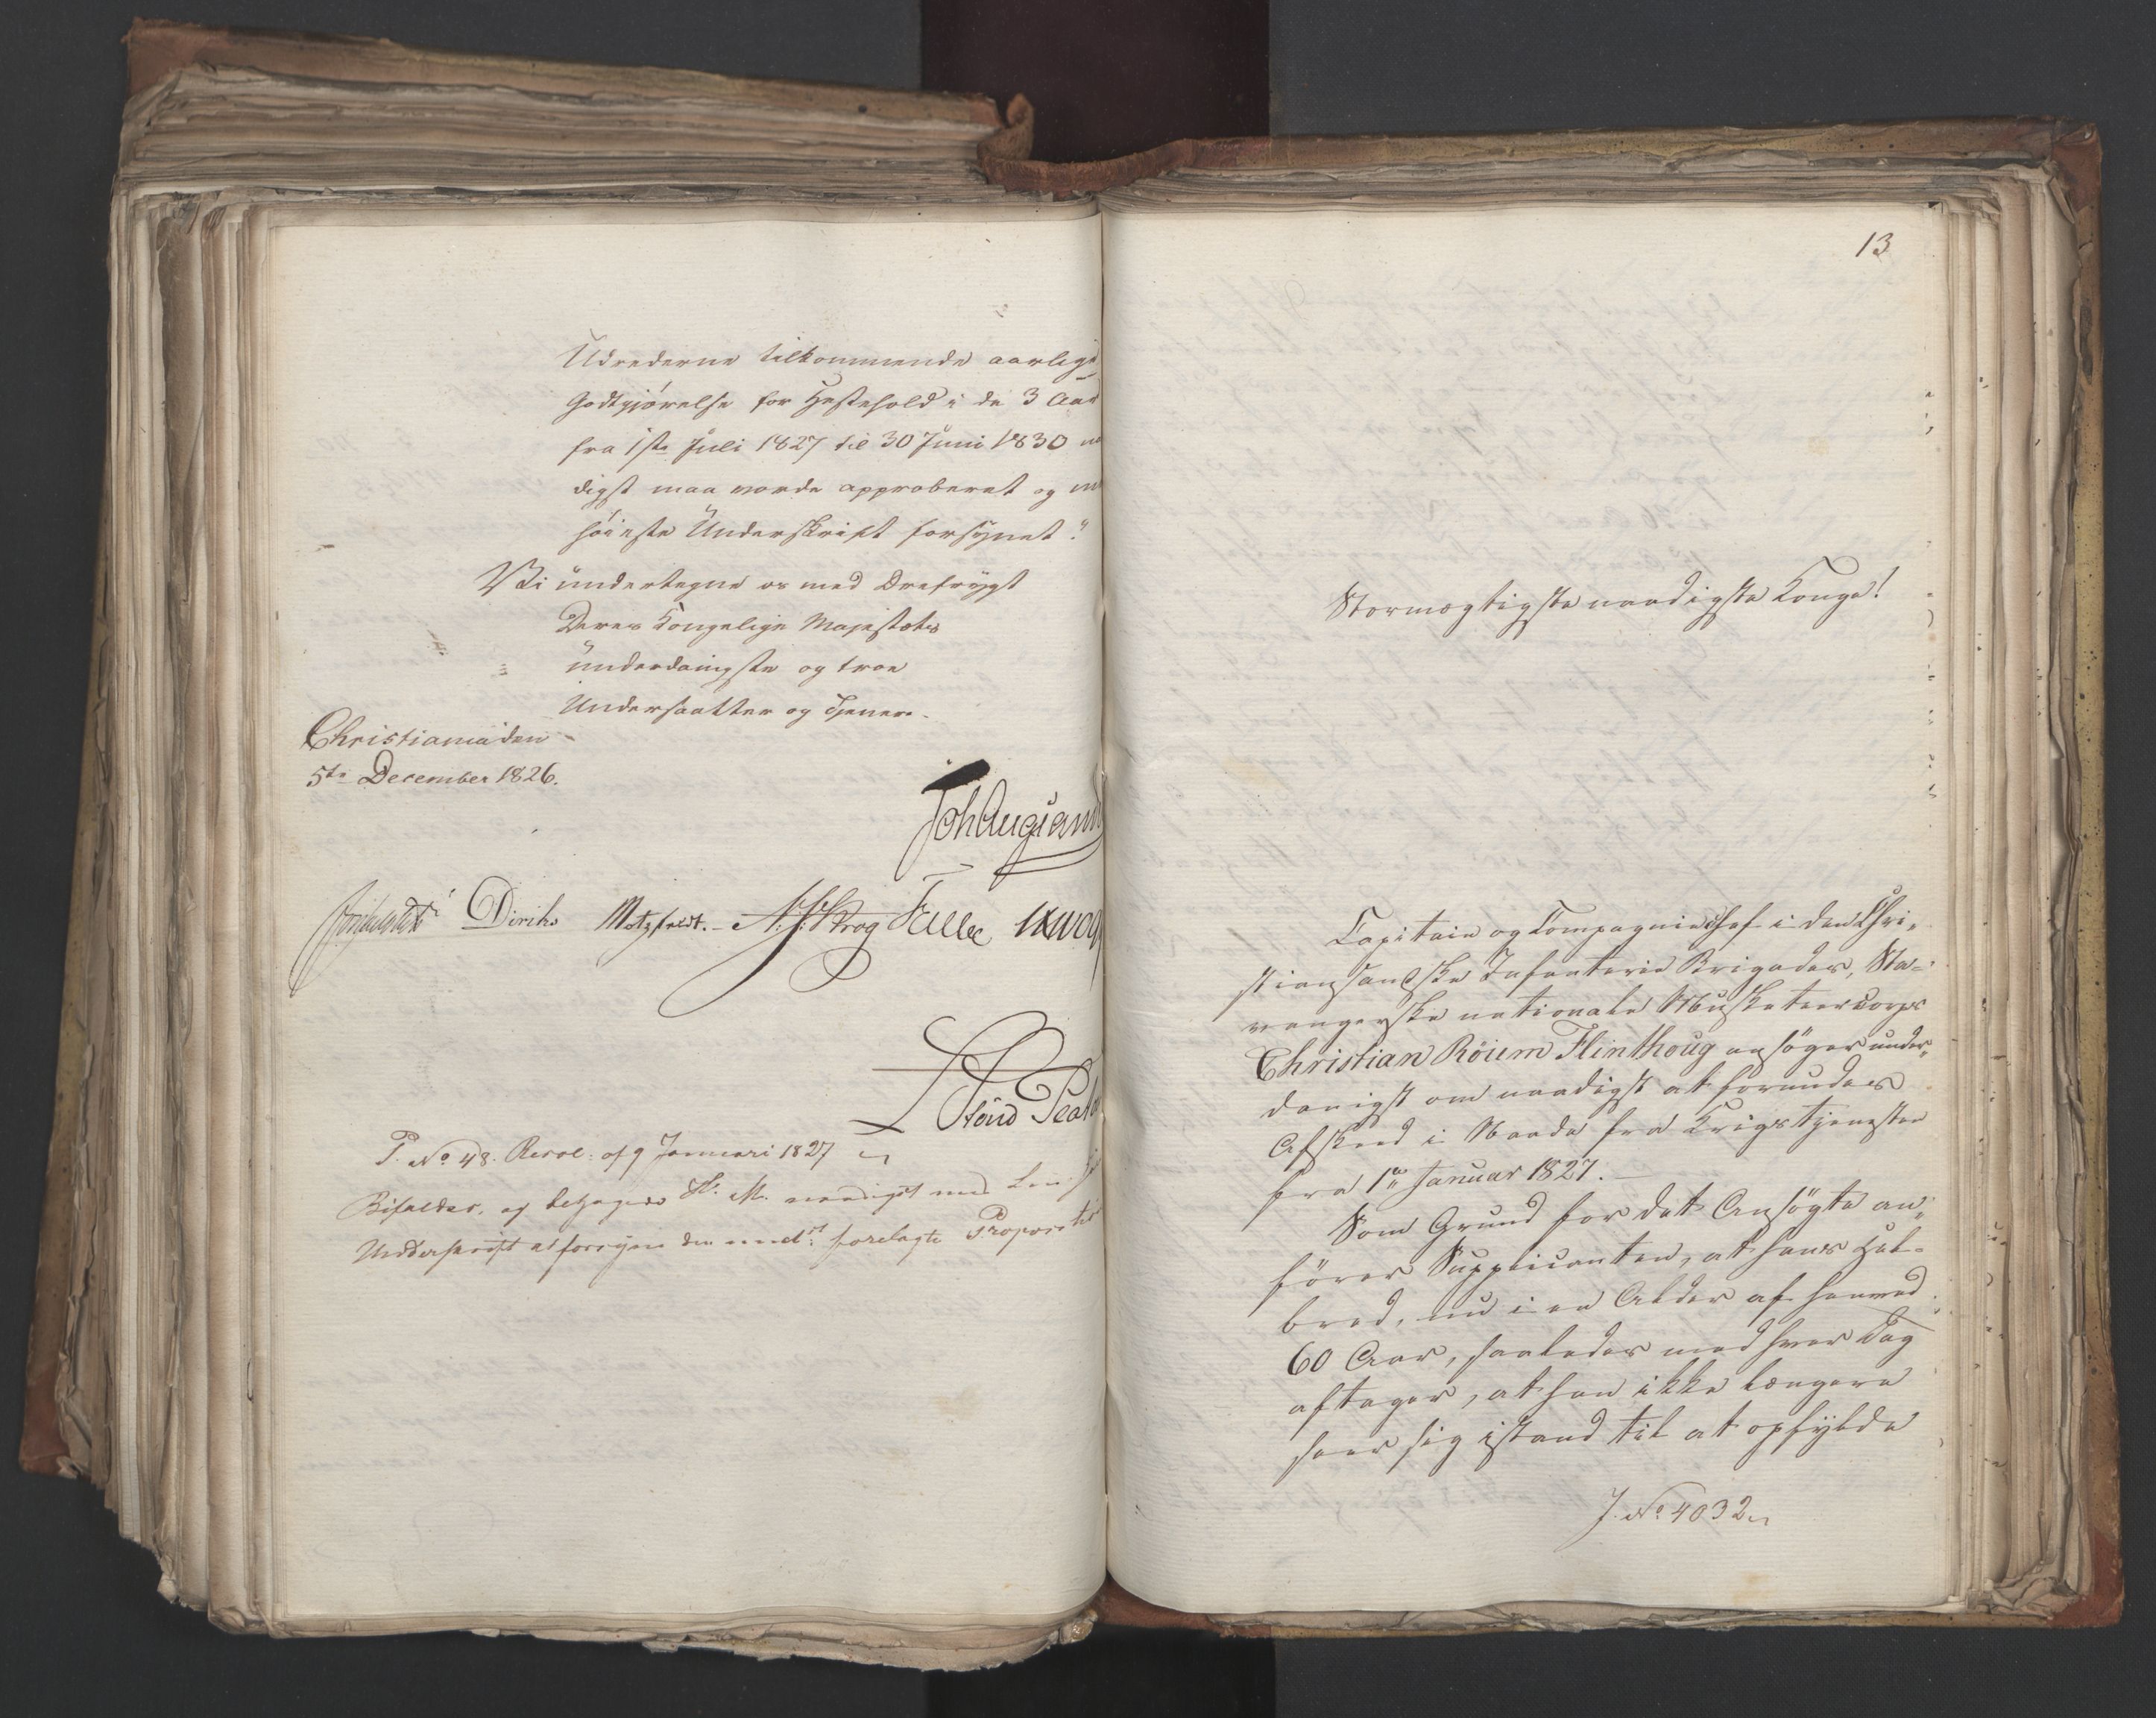 Udrederne tilkommende aarlige
Godtgjørelse for Hestehold i de 3 Aar
fra 1ste Juli 1827 til 30 Juni 1830
digst maa vorde approberet og
høieste Underskrift forsynet."
Vi undertegne os med Ærefrygt
Deres Kongelige Majestæts
underdanigste og troe
Undersaatter og Tjenere.
Christiania den
5te December 1826.
Joh Aug Sand
Diriks Motzfeldt. A. P. Krog Fasting
P. No 48. Resol: af 9 Januari 1827
Bifaldes, og behager H. M. naadigst med
Underskrift at forsyne den forelagte Proposition
13
Stormægtigste naadigste Konge!
Capitain og Compagniechef i den Chri„
stiansandske Infanterie Brigades, Sta-
vangerske nationale Musketeercorps
Christian Röiem Flinthoug ansøger under„
danigst om naadigst at forundes
Afskeed i Naade fra Krigstjenesten
fra 1te Januar 1827. —
Som Grund for det Ansøgte an„
fører Supplicanten, at hans Hel-
bred, nu i en Alder af henved
60 Aar, saaledes med hver Dag
aftager, at han ikke længere
seer sig istand til at opfylde
J. No 4032